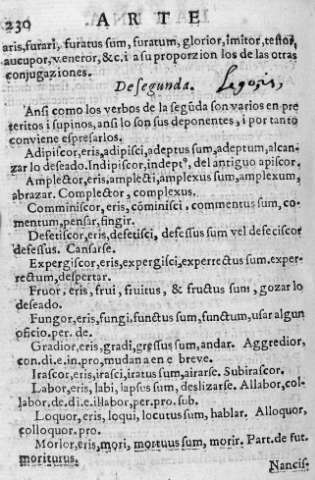 230 ARTE
aris, furari, furatus sum, furatum, glorior, imitor, testor,
aucupor, veneror, &c. i a su proporzion los de las otras
conjugaziones.
De segunda.
Ansi como los verbos de la segũda son varios en pre
teritos i supinos, ansi lo son sus deponentes, i por tanto
conviene espresarlos.
Adipiscor, eris, adipisci, adeptus sum, adeptum, alcan-
zar lo deseado. Indipiscor, indeptꝰ, del antiguo apiscor.
Amplector, eris, amplecti, amplexus sum, amplexum,
abrazar. Complector, complexus.
Comminiscor, eris, cōminisci, commentus sum, co-
mentum, pensar, fingir.
Defetiscor, eris, defetisci, defessus sum vel defeciscor
defessus. Cansarse.
Expergiscor, eris, expergisci, experrectus sum, exper-
rectum, despertar.
Fruor, eris, frui, fruitus, & fructus sum, gozar lo
deseado.
Fungor, eris, fungi, functus sum, functum, usar algun
oficio. per. de.
Gradior, eris, gradi, gressus sum, andar. Aggredior,
con. di. e. in. pro, mudan a en e breve.
Irascor, eris, irasci, iratus sum, airarse. Subirascor.
Labor, eris, labi, lapsus sum, deslizarse. Allabor, col-
labor, de. di. e. illabor, per. pro. sub.
Loquor, eris, loqui, locutus sum, hablar. Alloquor,
colloquor. pro.
Morior, eris, mori, mortuus sum, morir. Part. de fut.
moriturus.
Nancis-